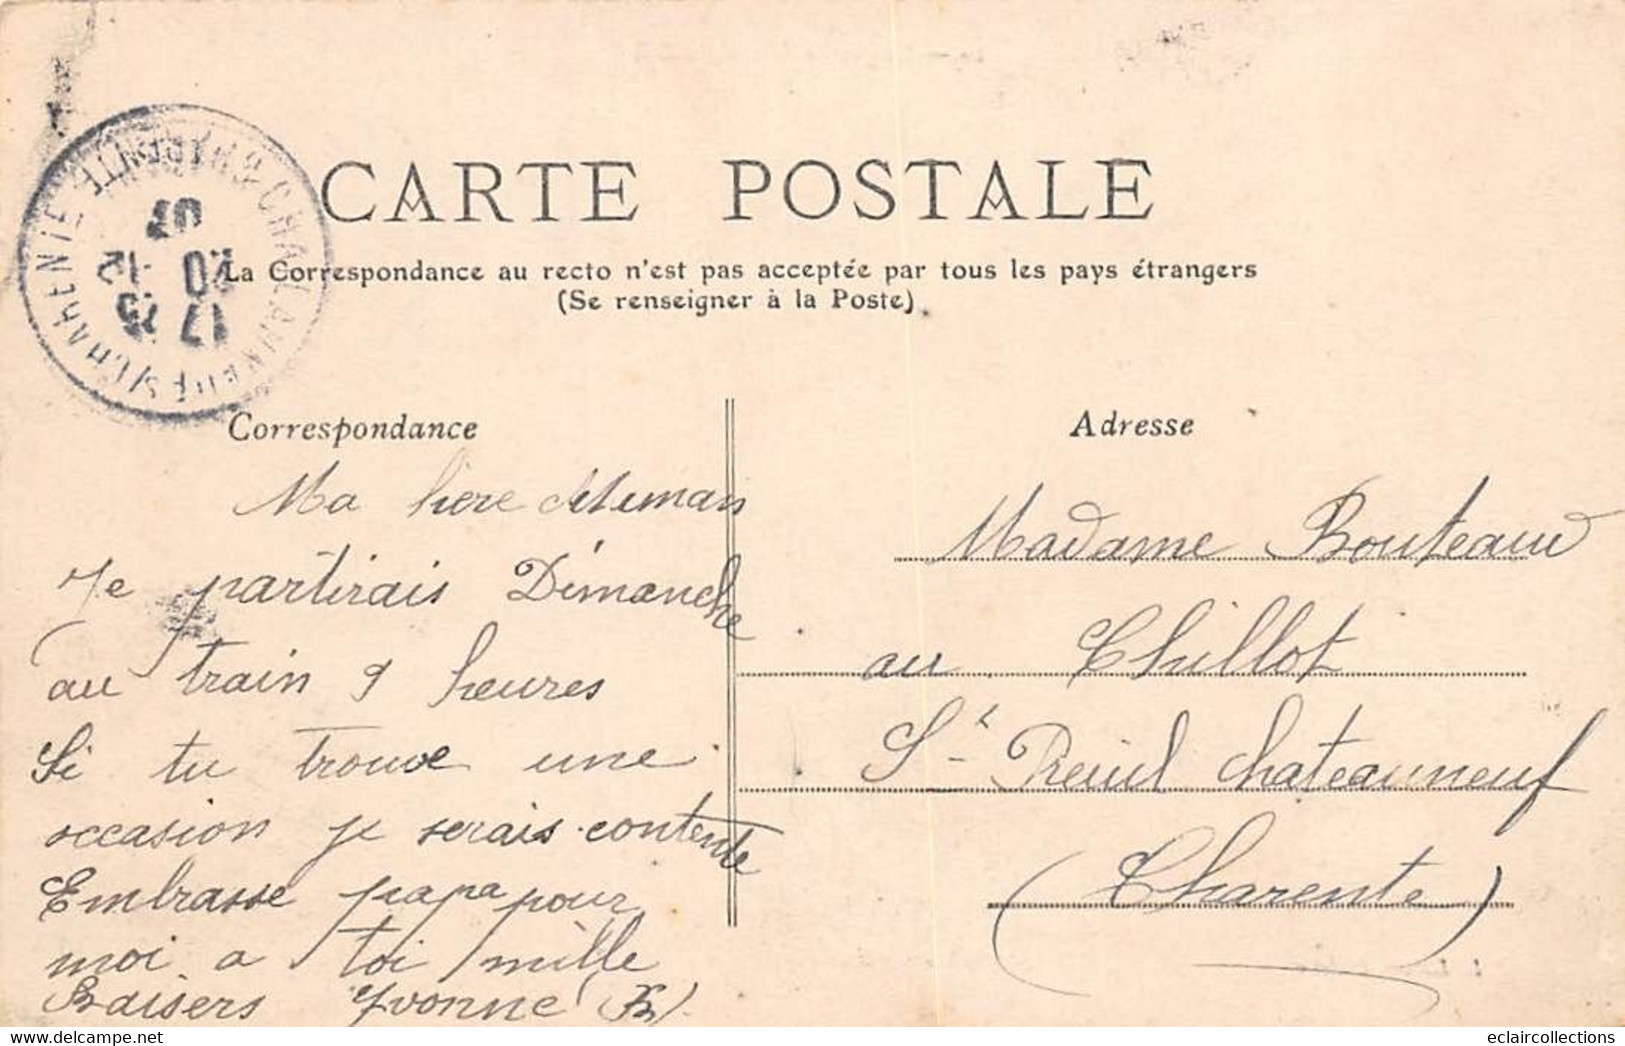 CARTE POSTALE
La Correspondance au recto n'est pas acceptée par tous les pays étrangers
(Se renseigner à la Poste)
17 25
20 -12
07
Correspondance
Ma chere Maman
Je partirais Dimanche
au train 9 heures
Si tu trouve une
occasion je serais contente
Embrasse papa pour
moi a toi mille
Baisers Yvonne (B)
Adresse
Madame Bouteaud
au Chillot
St Preuil Chateauneuf
(Charente)
eclaircollections